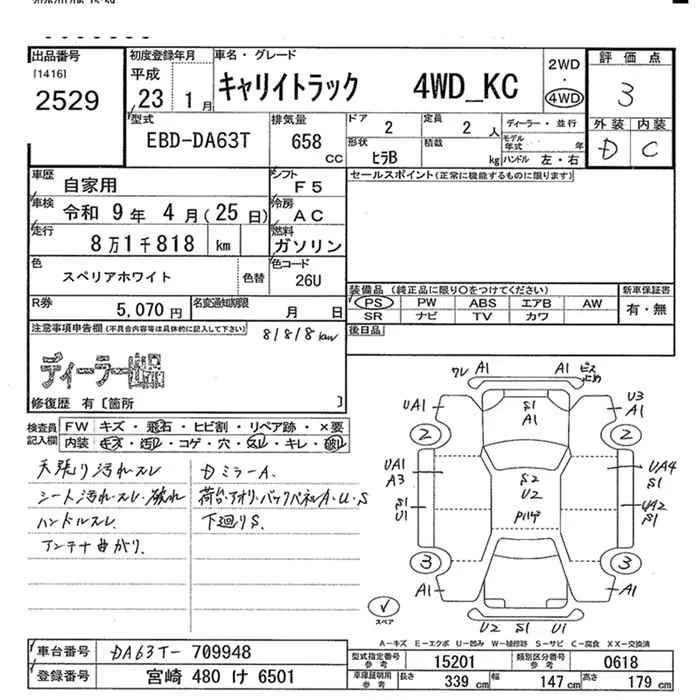 出品番号
[1416]
2529
初度登録年月
平成
23 1 月
車名・グレード
キャリイトラック 4WD_KC
2WD
・
4WD
評価点
3
外装 内装
D C
型式
EBD-DA63T
排気量
658
CC
ドア
2
定員
2 人
形状
ヒラB
積載
kg
ディーラー・並行
モデル年式 年
ハンドル 左・右
車歴
自家用
シフト
F5
車検
令和 9年 4月(25日)
冷房
AC
走行
8万1千818 km
燃料
ガソリン
色
スペリアホワイト
色替
色コード
26U
R券
5,070 円
名変通知期限
月 日
セールスポイント(正常に機能するものに限ります)
装備品 (純正品に限り○をつけてください)
PS PW ABS エアB AW
SR ナビ TV カワ
新車保証書
有・無
後日品
注意事項申告欄(不具合内容等は具体的に記入して下さい)
81818km
ディーラー
修復歴 有〔箇所 〕
検査員
記入欄
FW キズ・飛石・ヒビ割・リペア跡・×要
内装 キズ・汚レ・コゲ・穴・スレ・キレ・破レ
天張り汚れスレ
シート汚れスレ破れ
ハンドルスレ
アンテナ曲がり.
DミラーA.
荷台・アオリ・バックパネルA・U・S
下廻りS.
ワレ A1 A1 ビス止め
UA1
A1
S1
A1
U3
A1
2
2
UA1
A3
S1
U1
S2
U2
UA4
S1
UA2
S1
3
3
A1
A1
スペア
U2 S1 U1
A-キズ E-エクボ U-凹み W-補修跡 S-サビ C-腐食 XX-交換済
車台番号
DA63T- 709948
登録番号
宮崎 480 け 6501
型式指定番号
参考
15201
類別区分番号
参考
0618
車庫証明用
参考
長さ
339 cm
幅
147 cm
高さ
179 cm